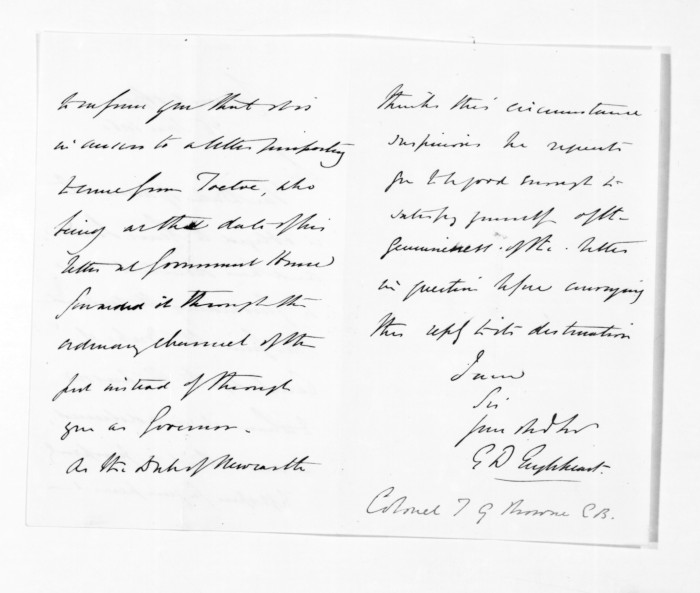 to inform you that it is
in answer to a letter purporting
to come from Toetoe, who
being at the date of his
letter at Government House
forwarded it through the
ordinary channel of the
post instead of through
you as Governor.
As the Duke of Newcastle
thinks this circumstance
suspicious he requests
you to be good enough to
satisfy yourself of the
genuineness of the letter
in question before conveying
this reply to its destination
I am
Sir
Your
G D Engleheart.
Colonel T G Browne C.B.